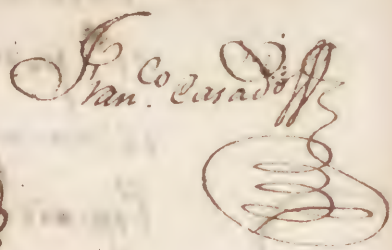 Fran.co Casado